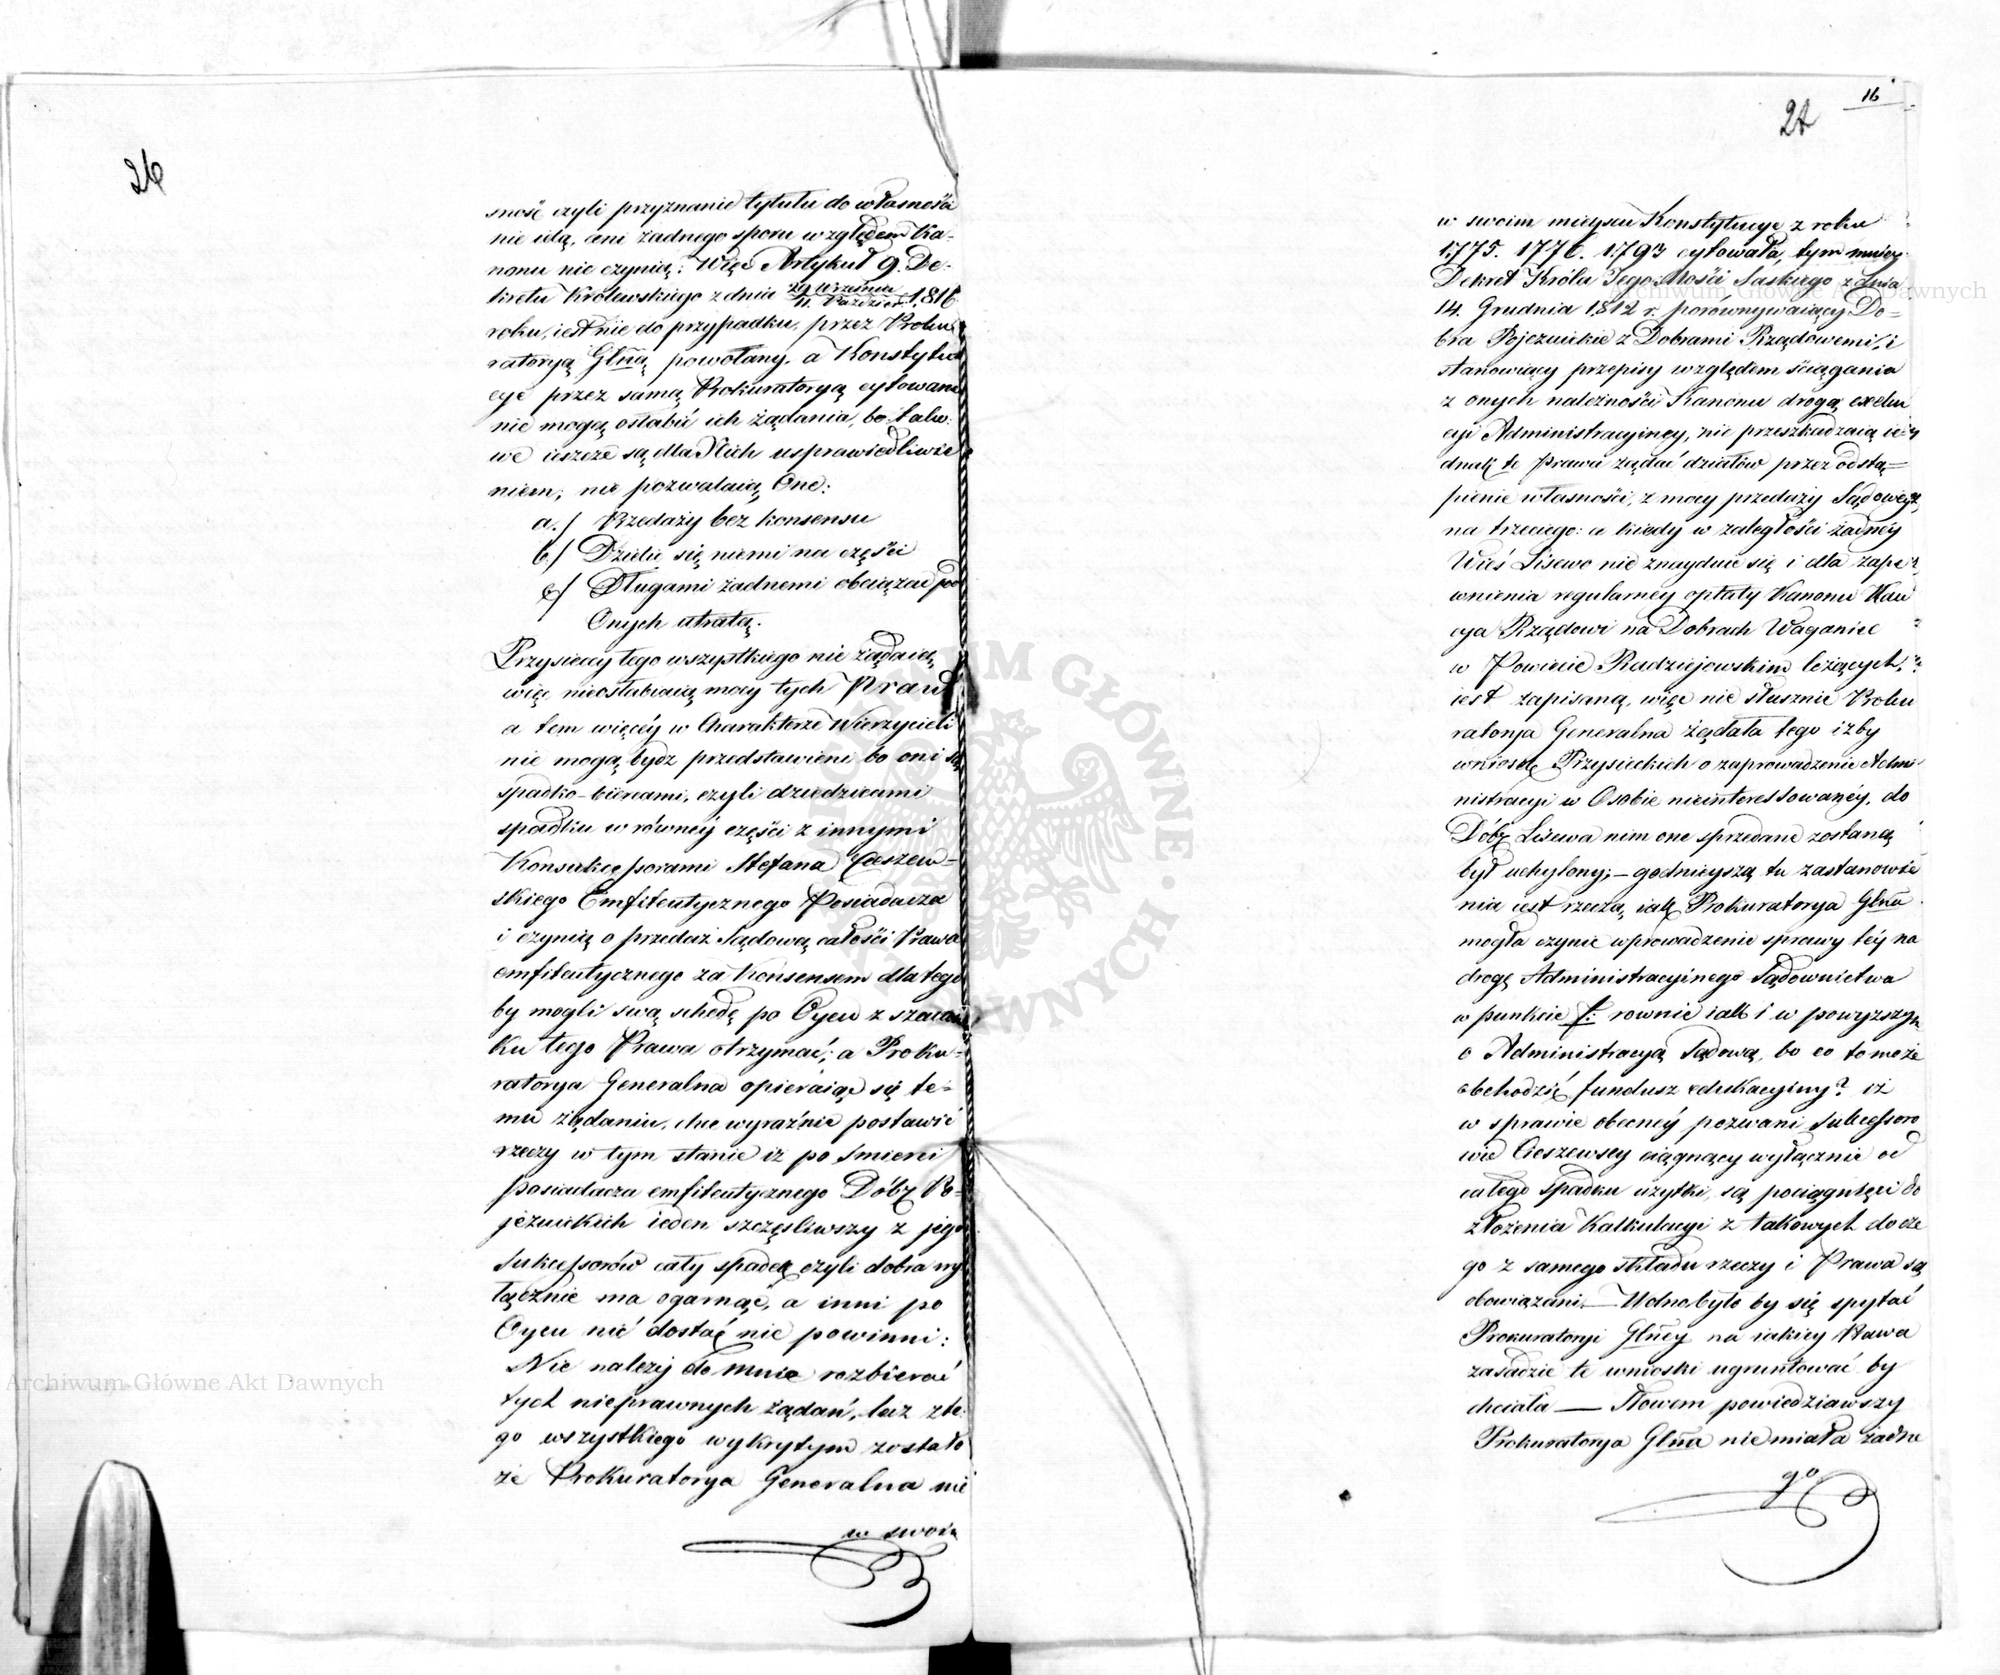 26
sność czyli przyznanie tytułu do własności
nie idą, ani żadnego sporu względem Ka-
nonu nie czynią; Więc Artykuł 9. De-
kretu Królewskiego z dnia 29 Września / 11. Paździer: 1,816
roku, iest nie do przypadku, przez Proku
ratoryą Glną powołany, a Konstytu
cye przez samą Prokuratoryą cytowane
nie mogą osłabić ich żądania, bo takο
we ieszcze są dla Nich usprawiedliwie
niem; nie pozwalaią One:
a./ Przedaży bez konsensu
b./ Dzielić się niemi na części
c/ Długami żadnemi obciążać pod
Onych utratą.
Przysieccy tego wszystkiego nie żądaią
więc nieosłabiaią mocy tych Praw
a tem więcéy w Charakterze Wierzycieli
nie mogą bydz przedstawieni bo oni są
spadko-biercami, czyli dziedzicami
spadku w równéy części z innymi
Konsukcessorami Stefana Cieszew-
skiego Emfiteutycznego Posiadacza
i czynią o przedaż Sądową całości Prawa
emfiteutycznego za Konsensem dla tego
by mogli swą schedę po Oycu z szacun
ku tego Prawa otrzymać; a Proku-
ratorya Generalna opieraiąc się te-
mu żądaniu, chce wyraźnie postawić
rzeczy w tym stanie iż po śmierci
posiadacza emfiteutycznego Dóbr Po-
jezuickich ieden szczęśliwszy z jego
Sukcessorów cały spadek czyli dobra wy
łącznie ma ogarnąć, a inni po
Oycu nić dostać nie powinni:
Nie należy do mnie rozbierać
tych nieprawnych żądań, lecz z te
go wszystkiego wykrytym zostało
że Prokuratorya Generalna nie
w swoim
16
27
w swoim mieyscu Konstytucye z roku
1,775. 1776. 1.793 cytowała, tym mniey
Dekret Króla Jego Mości Saskiego z dnia
14. Grudnia 1,812 r. porównywaiący Do-
bra Pojezuickie z Dobrami Rządowemi, i
stanowiący przepisy względem ściągania
z onych należności Kanonu drogą exeku
cyi Administracyiney, nie przeszkadzaią ie
dnak te Prawa żądać działów przez odstą-
pienie własności, z mocy przedaży Sądowey,
na trzeciego: a kiedy w zaległości żadney
Wieś Lisewo nie znayduie się i dla zape
wnienia regularney opłaty Kanonu Kau
cya Rządowi na Dobrach Waganiec
w Powiecie Radziejowskim leżących,
iest zapisaną, więc nie słusznie Proku
ratorya Generalna żądała tego iżby
wniosek Przysieckich o zaprowadzenie Admi-
nistracyi w Osobie nieinteressowanéy, do
Dóbr Lisewa nim one sprzedane zostaną
był uchylony; — godnieyszą tu zastanowie
nia iest rzeczą, iak Prokuratorya Glna
mogła czynić wprowadzenie sprawy téy na
drogę Administracyinego Sądownictwa
w punkcie f: rownie iak i w powyższym
o Administracyą Sądową, bo co to może
obchodzić fundusz edukacyiny? iż
w sprawie obecnéy pozwani Sukcessoro
wie Cieszewscy ciągnący wyłącznie od
całego spadku użytki, są pociągnięci do
złożenia Kalkulacyi z takowych do cze
go z samego składu rzeczy i Prawa są
obowiązani. — Wolno było by się spytać
Prokuratoryi Glney na iakiey Prawa
zasadzie te wnioski ugruntować by
chciała — Słowem powiedziawszy
Prokuratorya Glna niemiała żadne
go
Archiwum Główne Akt Dawnych
Archiwum Główne Akt Dawnych
ARCHIWUM GŁÓWNE AKT DAWNYCH